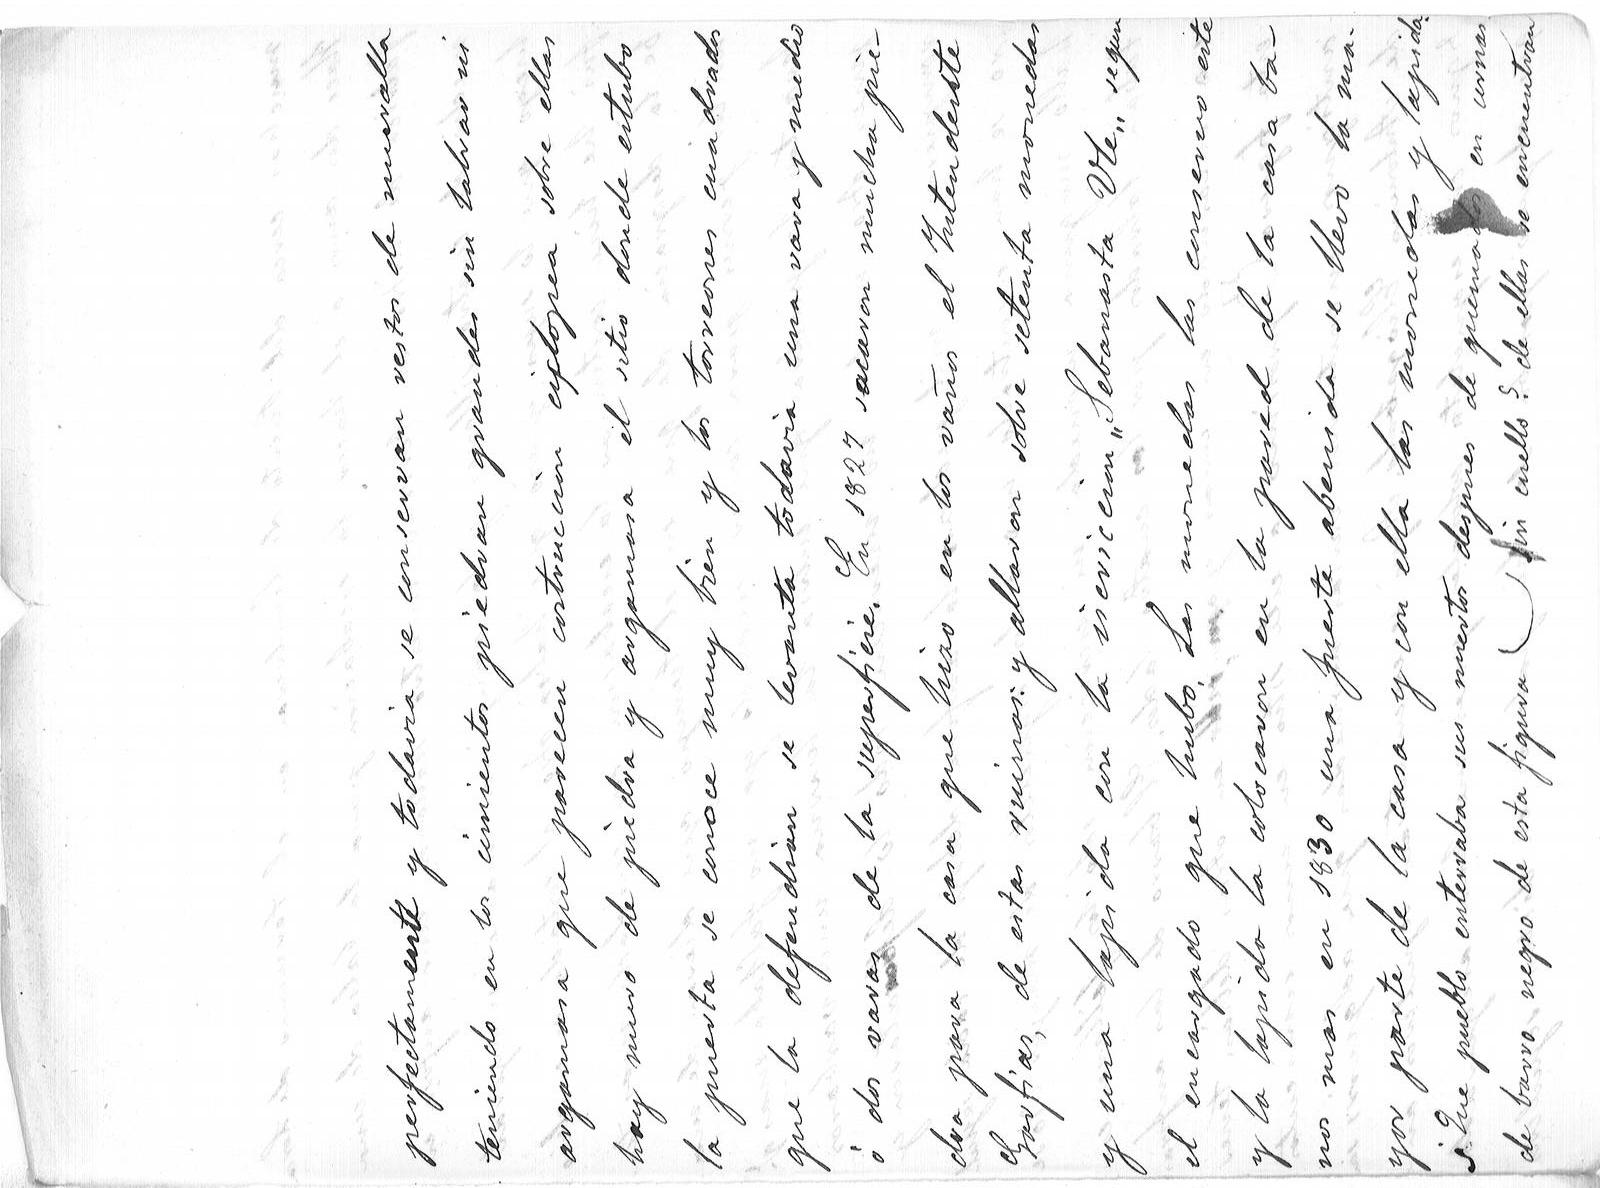 perfectamente y todavia se conservan restos de muralla
teniendo en los cimientos piedran grandes sin labrar ni
argamasa que parecen costrucion ciclopea sobre ellas
hay muro de piedra y argamasa el sitio donde estubo
la puerta se conoce muy bien y los torreones cuadrados
que la defendian se levanta todavia una vara y medio
ó dos varas de la superficie. En 1827 sacaron mucha pie-
dra para la casa que hizo en los vaños el Intendenste
Garfias, de estas ruinas: y allaron sobre setenta monedas
y una lapida con la iscricion "Lebanasta Vte" segun
el encargado que hubo, Las monedas las conservo este
y la lapida la colocaron en la pared de la casa ba
nos mas en 1830 una fuerte abenida se llevo la ma-
yor parte de la casa y con ella las monedas y lapida.
s. Que pueblo enterraba sus muertos despues de quemados en urnas
de barro negro de esta figura sin cuello? de ellas se encuentran